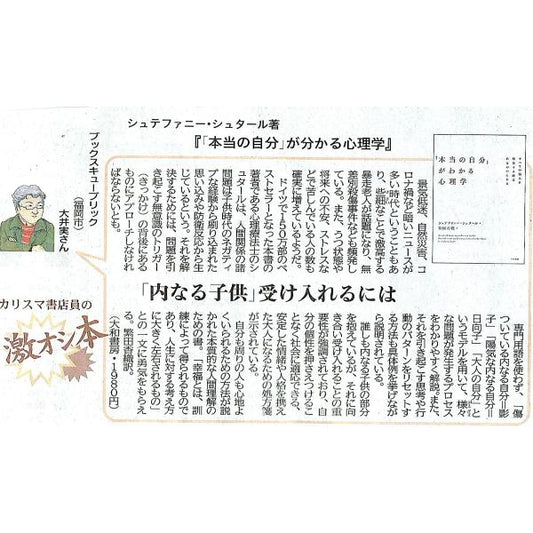 シュテファニー・シュタール著
『「本当の自分」が分かる心理学』
「本当の自分」
がわかる
心理学
「内なる子供」受け入れるには
景気低迷、自然災害、コ
ロナ禍など暗いニュースが
多い時代ということもあ
り、些細なことで激高する
暴走老人が話題になり、無
差別殺傷事件なども頻発し
ている。また、うつ状態や
将来への不安、ストレスな
どで苦しんでいる人の数も
確実に増えているようだ。
ドイツで150万部のベ
ストセラーとなった本書の
著者である心理療法士のシ
ュタールは、人間関係の諸
問題は子供時代のネガティ
ブな経験から刷り込まれた
思い込みや防衛反応から生
じているという。それを解
決するためには、問題を引
き起こす無意識のトリガー
（きっかけ）の背後にある
ものにアプローチしなけれ
ばならないとも。
専門用語を使わず、「傷
ついている内なる自分＝影
子」「陽気な内なる自分＝
日向子」「大人の自分」と
いうモデルを用いて、様々
な問題が発生するプロセス
をわかりやすく解説。また、
それを引き起こす思考や行
動のパターンをリセットす
る方法も具体例を挙げなが
ら説明されている。
誰しも内なる子供の部分
を抱えているが、それに向
き合い受け入れることの重
要性が強調されており、自
分の個性を押さえつけるこ
となく社会に適応できる、
安定した情緒や人格を携え
た大人になるための処方箋
が示されている。
自分も周りの人も心地よ
くいられるための方法が説
かれた本質的な人間理解の
ための書。「幸福とは、訓
練によって得られるもので
あり、人生に対する考え方
に大きく左右されるもの」
との一文に勇気をもらえ
る。繁田香織訳。
（大和書房・1980円）
ブックスキューブリック
（福岡市）
大井実さん
カリスマ書店員の
激オシ本